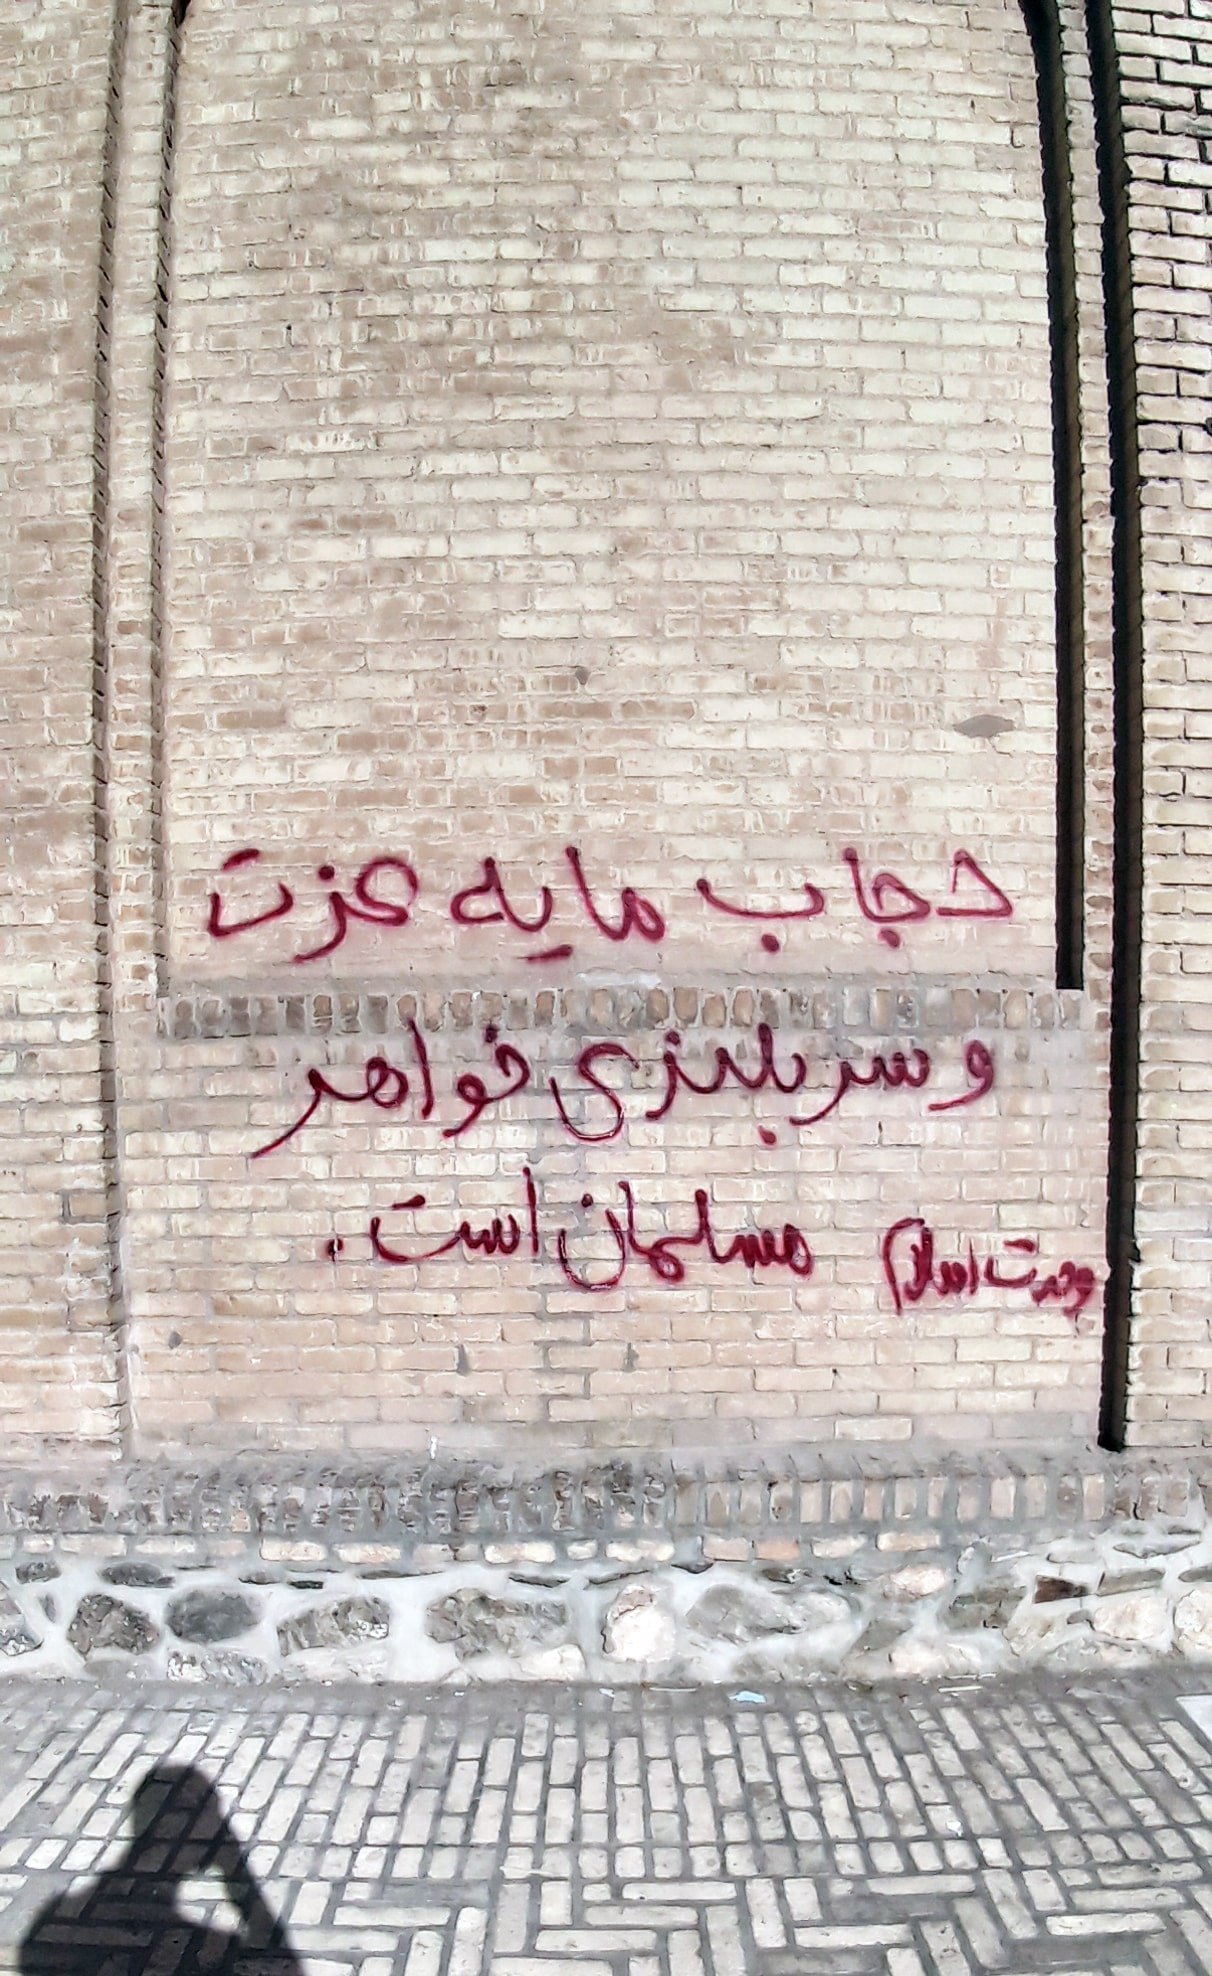 حجاب مایه عزت
و سربلندی خواهر
مسلمان است.
وحدت اسلام